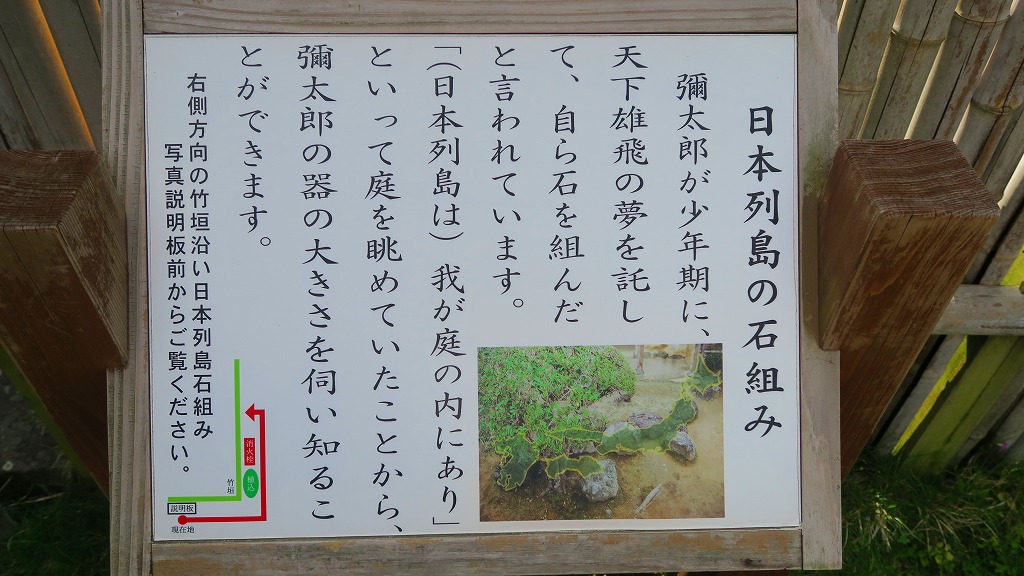 日本列島の石組み
彌太郎が少年期に、
天下雄飛の夢を託し
て、自ら石を組んだ
と言われています。
「(日本列島は)我が庭の内にあり」
といって庭を眺めていたことから、
彌太郎の器の大きさを伺い知るこ
とができます。
右側方向の竹垣沿い日本列島石組み
写真説明板前からご覧ください。
消火栓
植込
竹垣
説明板
現在地